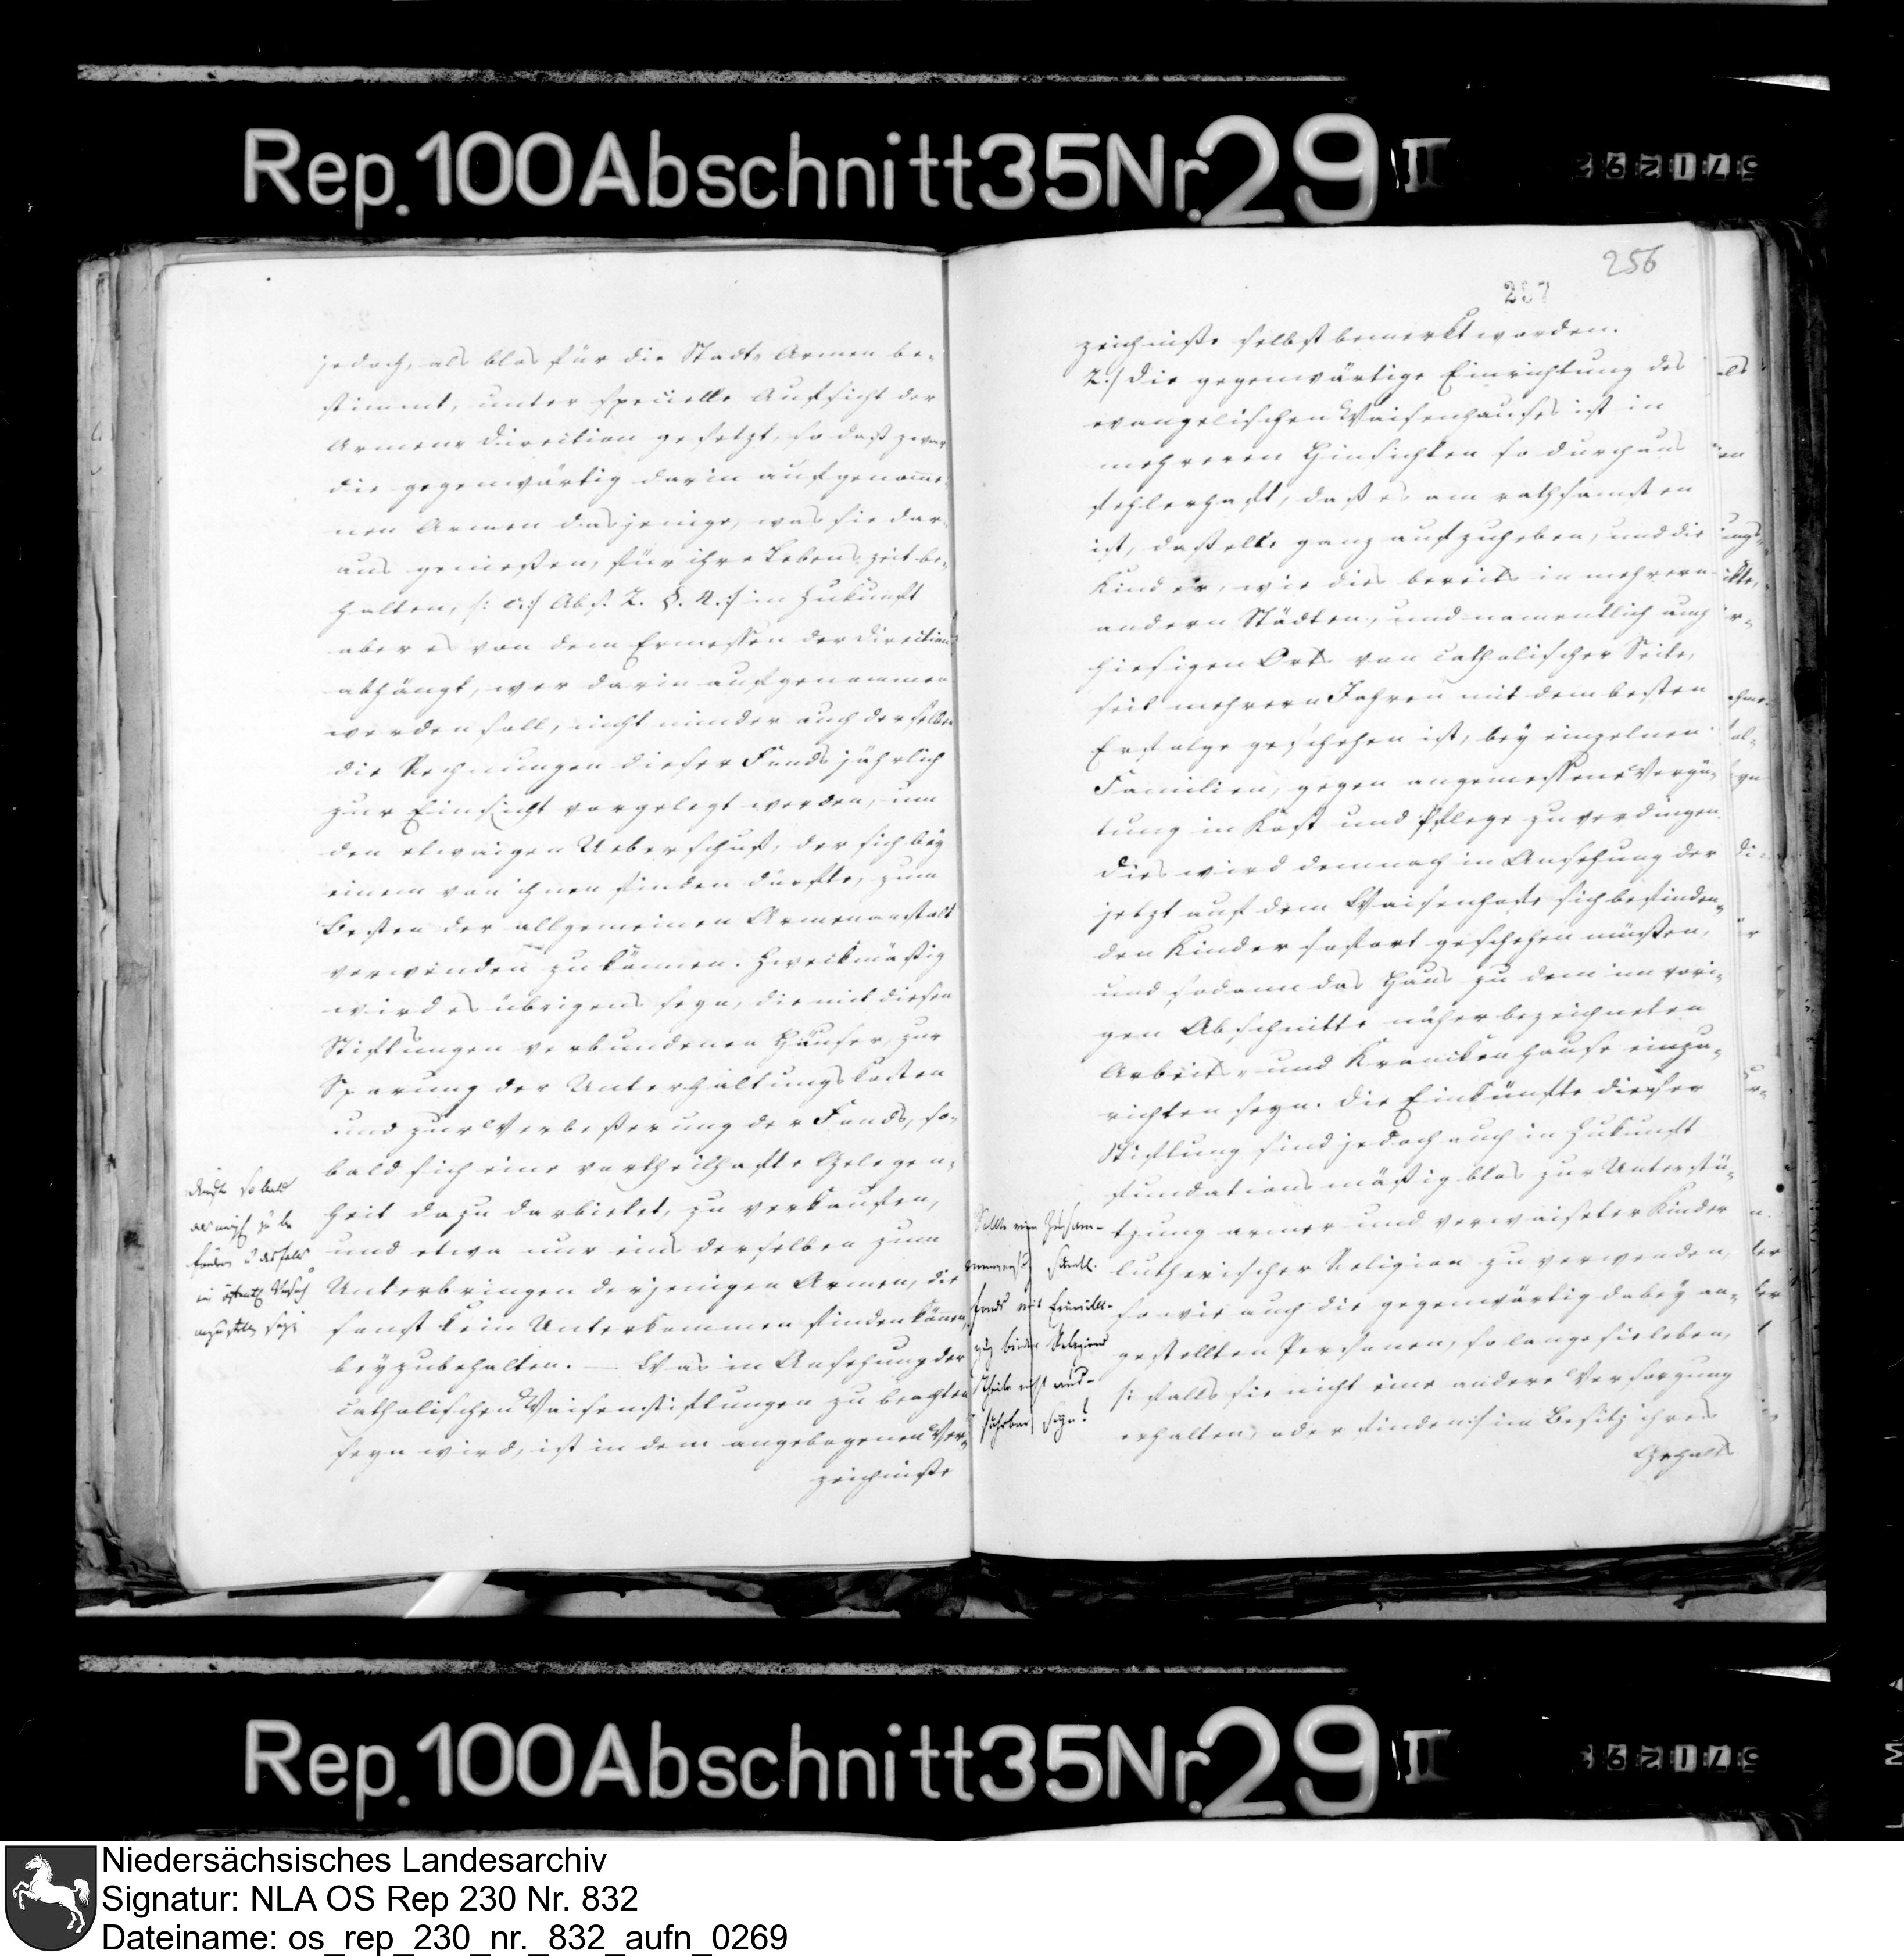 Rep. 100 Abschnitt 35 Nr. 29 II
jedoch, als blos für die Stadt- Armen be-
stimmt, unter specielle Aufsicht der
Armen- Direction gesetzt, so daß zwar
die gegenwärtig darin aufgenom̄e-
nen Armen dasjenige, was sie dar-
aus genießen, für ihre Lebenszeit be-
halten, /: c:/ Abs. 2. §. 4. :/ in Zukunft
aber es von dem Ermessen der Direction
abhängt, wer darin aufgenommen
werden soll, nicht minder auch derselben
die Rechnungen dieser Fonds jährlich
zur Einsicht vorgelegt werden, um
den etwaigen Ueberschuß, der sich bey
einem von ihnen finden dürfte, zum
Besten der allgemeinen Armenanstalt
verwenden zu können. Zweckmäßig
wird es übrigens seyn, die mit diesen
Stiftungen verbundenen Häuser, zur
Sparung der Unterhaltungskosten
und zur Verbeßerung der Fonds, so-
bald sich eine vortheilhafte Gelegen-
heit dazu darbietet, zu verkaufen,
und etwa nur eins derselben zum
Unterbringen derjenigen Armen, die
sonst kein Unterkommen finden können,
beyzubehalten. — Was in Ansehung der
catholischen Waisenstiftungen zu beachten
seyn wird, ist in dem angebogenen Ver-
zeichniße
so bald
zu
Versuch
anzustellen sey
256
257
zeichniße selbst bemerkt worden.
2:/ Die gegenwärtige Einrichtung des
evangelischen Waisenhauses ist in
mehreren Hinsichten so durchaus
fehlerhaft, daß es am rathsamsten
ist, daßelbe ganz aufzuheben, und die
Kinder, wie dies bereits in mehrern
andern Städten, und namentlich auch
hiesigen Orts von catholischer Seite,
seit mehrern Jahren mit dem besten
Erfolge geschehen ist, bey einzelnen
Familien, gegen angemessene Vergü-
tung in Kost und Pflege zu verdingen.
Dies wird demnach in Ansehung der
jetzt auf dem Waisenhofe sich befinden-
den Kinder sofort geschehen müßen,
und sodann das Haus zu dem im vori-
gen Abschnitte näher bezeichneten
Arbeits- und Krankenhause einzu-
richten seyn. Die Einkünfte dieser
Stiftung sind jedoch auch in Zukunft
fundationsmäßig blos zur Unterstü-
tzung armer und verwaiseter Kinder
lutherischer Religion zu verwenden,
so wie auch die gegenwärtig dabey an-
gestellten Personen, so lange sie leben,
/: falls sie nicht eine andere Versorgung
erhalten, oder finden :/ im Besitz ihres
Gehalts
Sollte eine Zusam-
sämtl.
Fonds mit Einwilli-
gung beider Religions
theile nicht aus-
führbar seyn?
Rep. 100 Abschnitt 35 Nr. 29 II
Niedersächsisches Landesarchiv
Signatur: NLA OS Rep 230 Nr. 832
Dateiname: os_rep_230_nr._832_aufn_0269